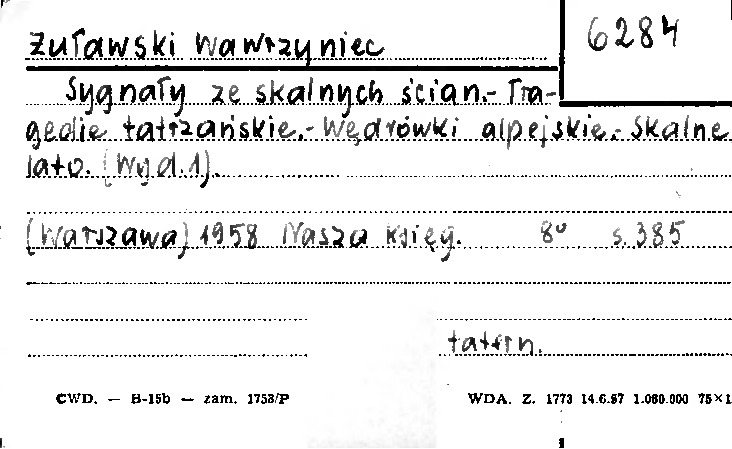 6284
Żuławski Wawrzyniec
Sygnały ze skalnych ścian.- Tra-
gedie tatrzańskie.- Wędrówki alpejskie.- Skalne
lato. (Wyd. 1).
(Warszawa) 1958 Nasza Księg. 8° s. 385
tatern.
CWD. — B-15b — zam. 1753/P
WDA. Z. 1773 14.6.57 1.060.000 75×1